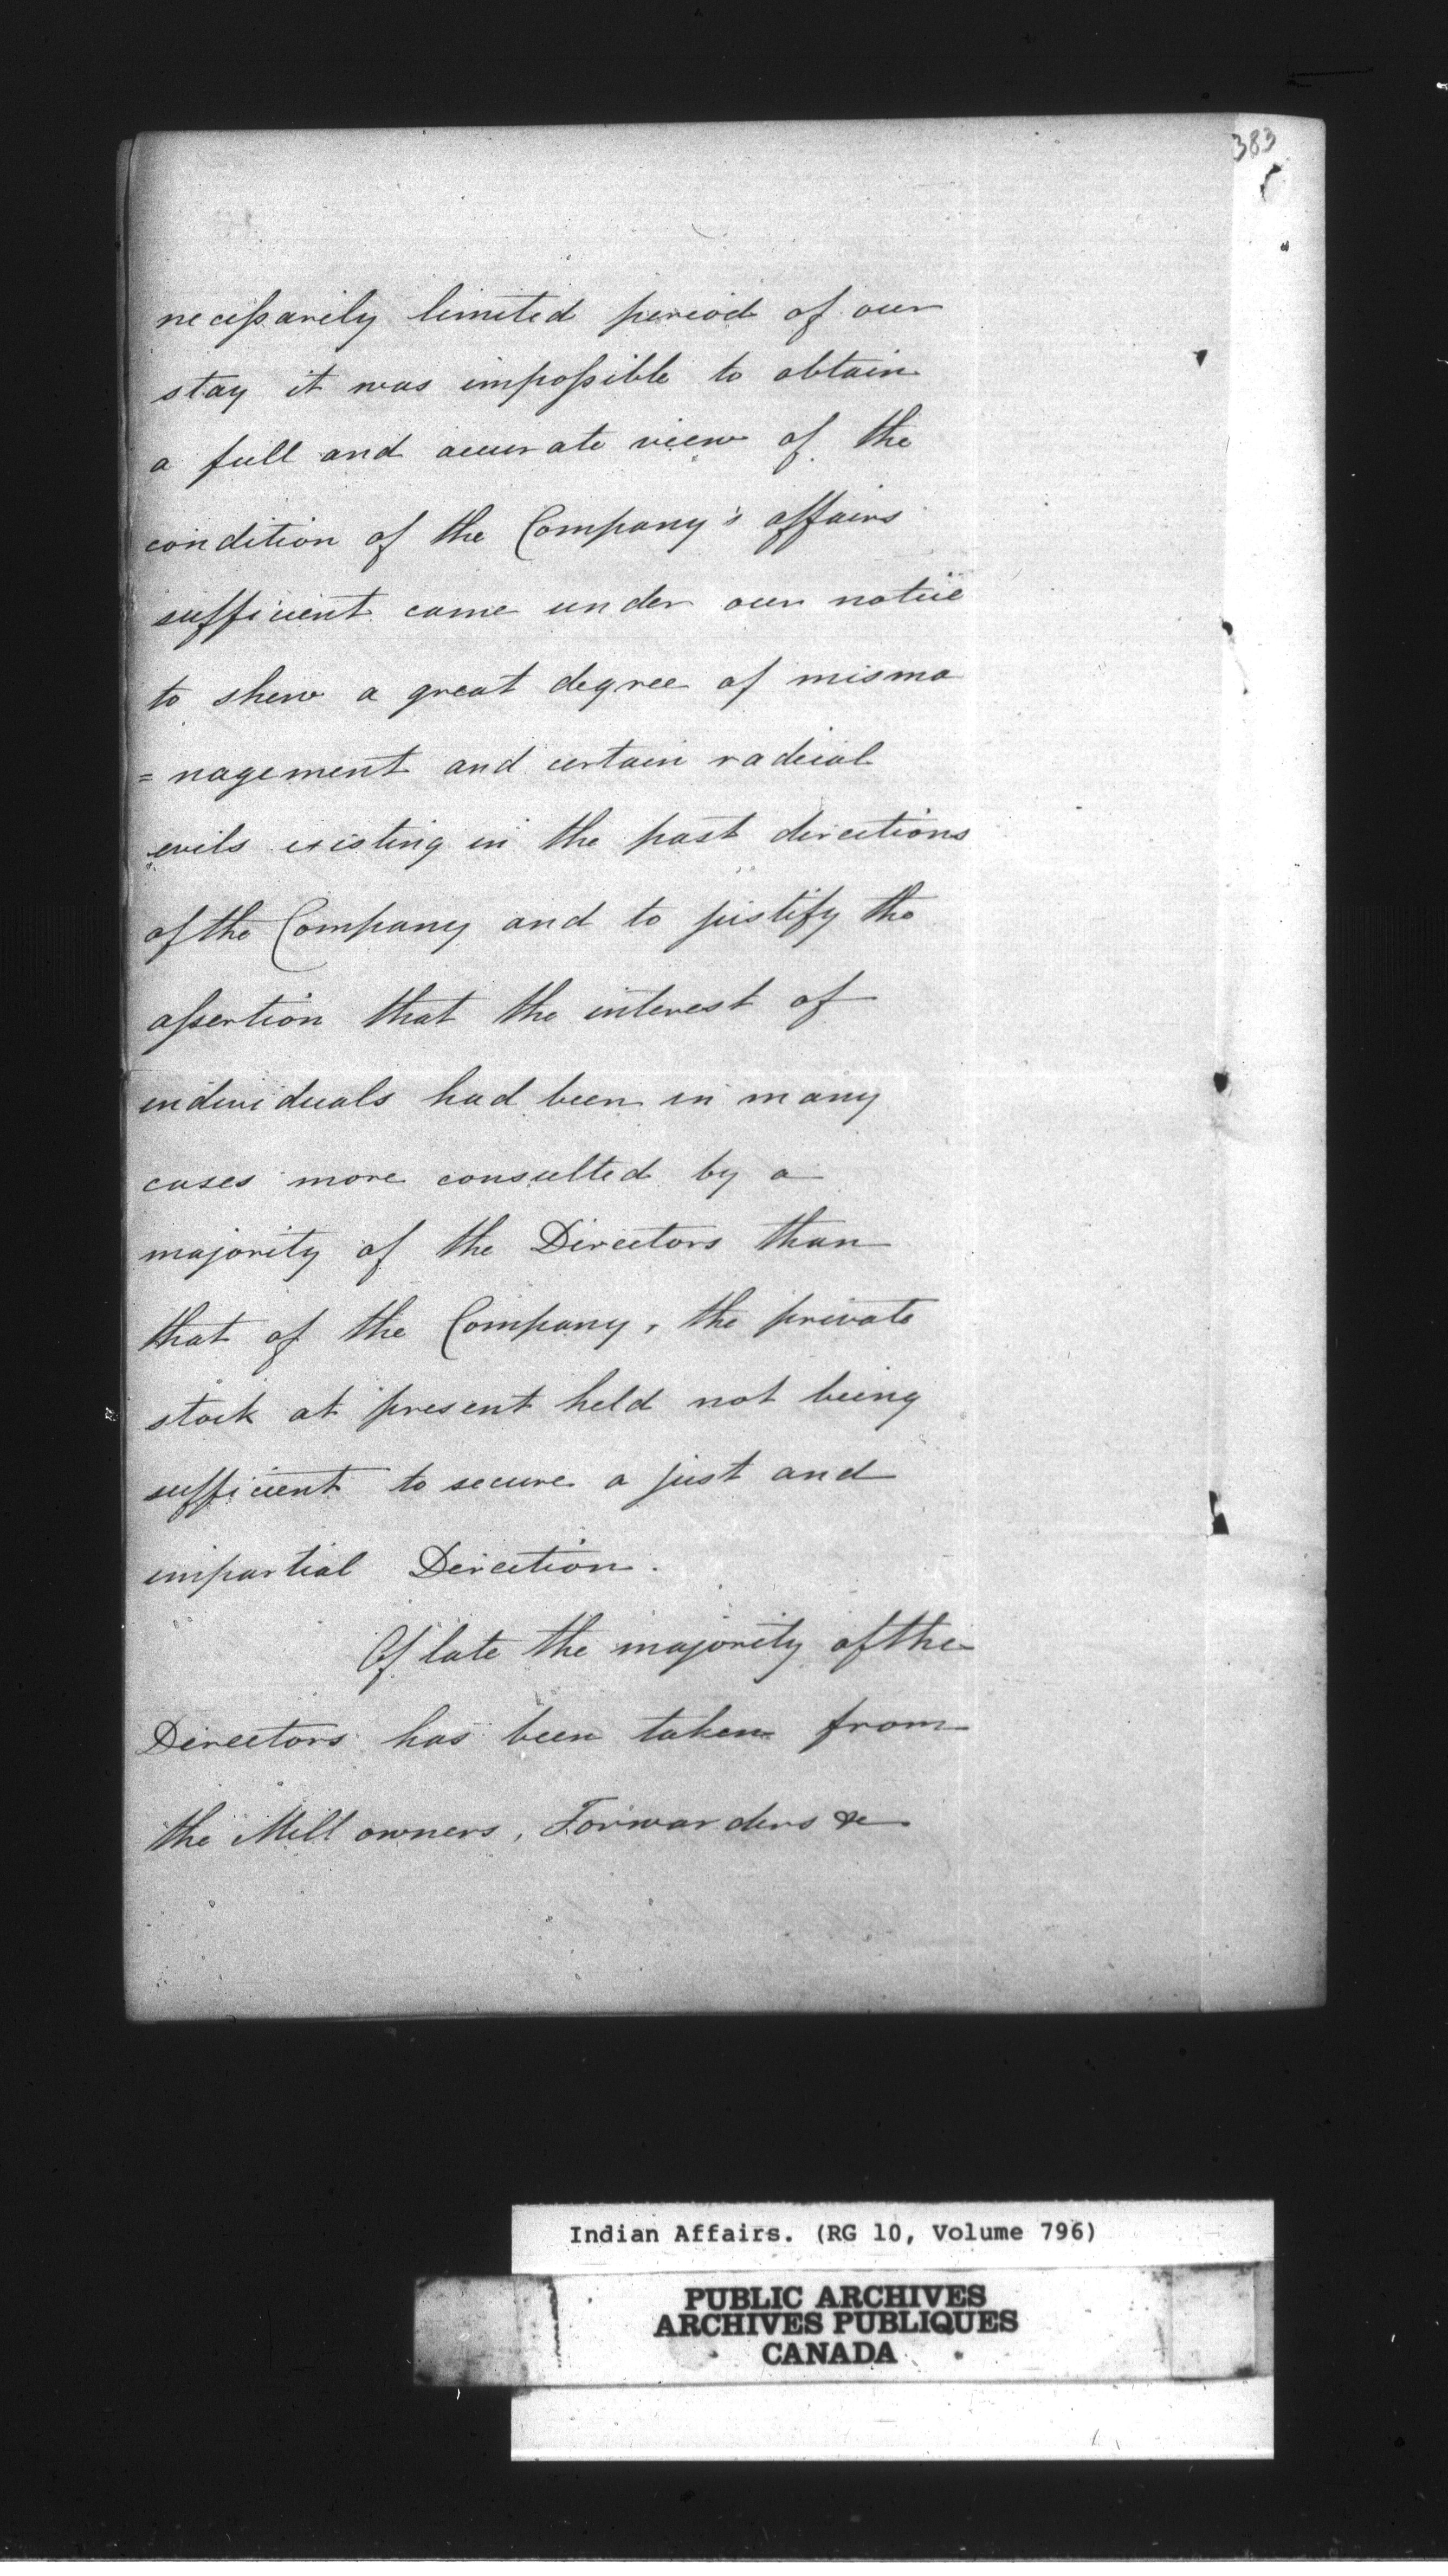 383
necessarily limited period of our
stay it was impossible to obtain
a full and accurate view of the
condition of the Company's affairs
sufficient came under our notice
to shew a great degree of misma
= nagement and certain radical
evils existing in the past directions
of the Company and to justify the
assertion that the interest of
individuals had been in many
cases more consulted by a
majority of the Directors than
that of the Company, the private
stock at present held not being
sufficient to secure a just and
impartial Direction.
Of late the majority of the
Directors has been taken from
the Mill owners, Forwarders &c
Indian Affairs. (RG 10, Volume 796)
PUBLIC ARCHIVES
ARCHIVES PUBLIQUES
CANADA